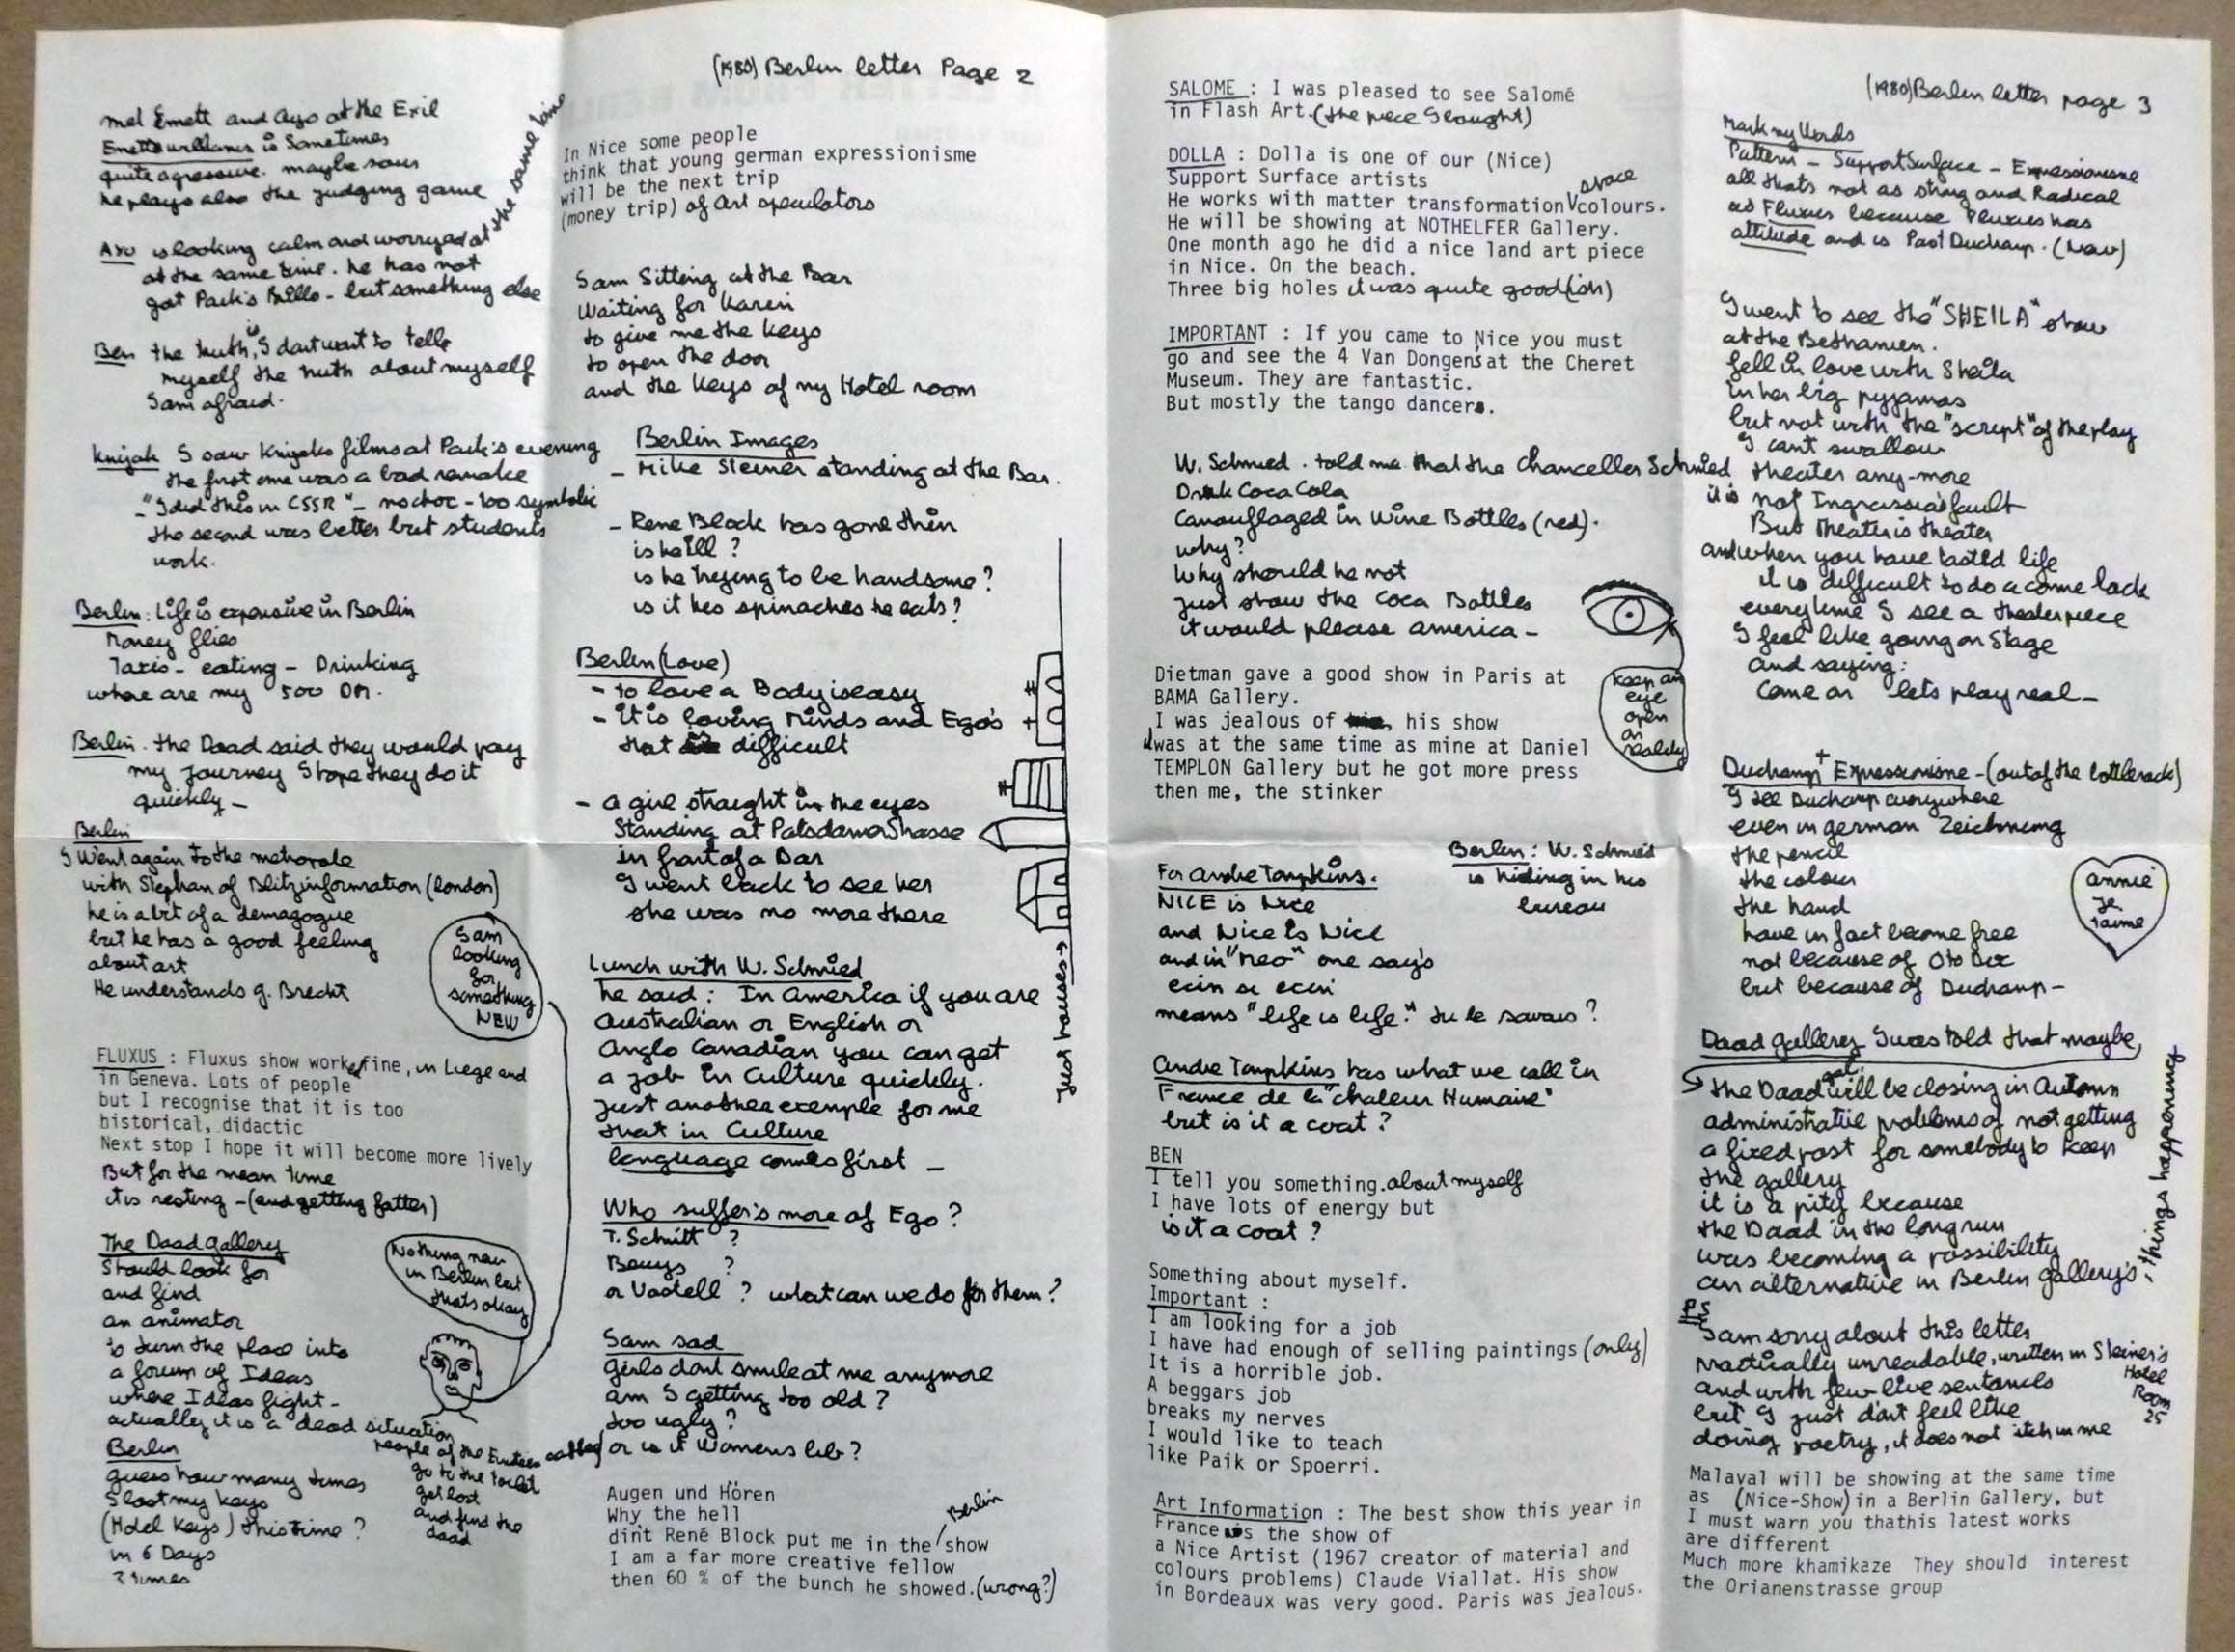 (1980) Berlin letter Page 2
met Emett and Ayo at the Exil
Emett Williams is Sometimes
quite agressive. maybe sour
he plays also the judging game
Ayo is looking calm and worryed at the same time
at the same time. he has not
got Paik's Brillo - but something else
Ben the truth is, I dont want to tell
myself the truth about myself
I am afraid.
Knijak I saw Knijaks films at Paik's evening
the first one was a bad remake
- "I did this in CSSR" - no choc - too symbolic
the second was better but students
work.
Berlin : Life is expensive in Berlin
Money flies
Taxis - eating - Drinking
where are my 500 DM.
Berlin. the Daad said they would pay
my journey I hope they do it
quickly -
Berlin
I Went again to the metropole
with Stephan of Blitzinformation (london)
he is a bit of a demagogue
but he has a good feeling
about art
He understands g. Brecht
I am
looking
for
something
NEW
FLUXUS : Fluxus show worked fine, in Liege and
in Geneva. Lots of people
but I recognise that it is too
historical, didactic
Next stop I hope it will become more lively
But for the mean time
it is resting - (and getting fatter)
The Daad gallery
Should look for
and find
an animator
to turn the place into
a forum of Ideas
where Ideas fight -
actually it is a dead situation
Nothing new
in Berlin but
thats okay
people of the Einstein
go to the toilet
get lost
and find the
daad
Berlin
guess how many times
I lost my keys
(Hotel Keys) this time ?
in 6 Days
? times
In Nice some people
think that young german expressionisme
will be the next trip
(money trip) of art speculators
I am Sitting at the Bar
Waiting for Karin
to give me the keys
to open the door
and the keys of my Hotel room
Berlin Images
- Mike Steiner standing at the Bar.
- Rene Block has gone thin
is he ill ?
is he trying to be handsome ?
is it his spinaches he eats ?
Berlin (Love)
- to love a Body is easy
- it is loving Minds and Ego's
that is difficult
- a girl straight in the eyes
Standing at Potsdamer Strasse
in front of a Bar
I went back to see her
she was no more there
just houses →
Lunch with W. Schmied
he said : In America if you are
Australian or English or
Anglo Canadian you can get
a job in Culture quickly.
just another exemple for me
that in Culture
language comes first -
Who suffer's more of Ego ?
T. Schmitt ?
Beuys ?
or Vostell ? what can we do for them ?
I am sad
girls dont smile at me anymore
am I getting too old ?
too ugly ?
or is it Womens lib ?
Augen und Hören
Why the hell
din't René Block put me in the Berlin show
I am a far more creative fellow
then 60 % of the bunch he showed. (wrong?)
SALOME : I was pleased to see Salomé
in Flash Art. (the piece I bought)
DOLLA : Dolla is one of our (Nice)
Support Surface artists
He works with matter transformation space colours.
He will be showing at NOTHELFER Gallery.
One month ago he did a nice land art piece
in Nice. On the beach.
Three big holes it was quite good (ish)
IMPORTANT : If you came to Nice you must
go and see the 4 Van Dongens at the Cheret
Museum. They are fantastic.
But mostly the tango dancers.
W. Schmied. told me that the Chanceller Schmied
Drink Coca Cola
Camouflaged in Wine Bottles (red).
why ?
Why should he not
just show the Coca Bottles
it would please america -
keep an
eye
open
on
reality
Dietman gave a good show in Paris at
BAMA Gallery.
I was jealous of his show
was at the same time as mine at Daniel
TEMPLON Gallery but he got more press
then me, the stinker
Berlin : W. Schmied
is hiding in his
bureau
For Andre Tompkins.
NICE is Nice
and Nice is Nice
and in "neo" one says
ecin si ecin
means "life is life." tu le savais ?
Andre Tompkins has what we call in
France de la "chaleur Humaine"
but is it a coat ?
BEN
I tell you something. about myself
I have lots of energy but
is it a coat ?
Something about myself.
Important :
I am looking for a job
I have had enough of selling paintings (only)
It is a horrible job.
A beggars job
breaks my nerves
I would like to teach
like Paik or Spoerri.
Art Information : The best show this year in
France is the show of
a Nice Artist (1967 creator of material and
colours problems) Claude Viallat. His show
in Bordeaux was very good. Paris was jealous.
(1980) Berlin letter page 3
Mark my Words
Pattern - Support Surface - Expressionisme
all thats not as strong and Radical
as Fluxus because Fluxus has
attitude and is Post Duchamp. (now)
I went to see the "SHEILA" show
at the Bethanien.
fell in love with Sheila
in her big pyjamas
but not with the "script" of the play
I cant swallow
theater any-more
it is not Ingrassia's fault
But Theater is theater
and when you have tasted life
it is difficult to do a come back
everytime I see a theaterpiece
I feel like going on Stage
and saying :
Come on lets play real -
Duchamp + Expressionisme - (out of the bottlerack)
I see Duchamp everywhere
even in german Zeichnung
the pencil
the colour
the hand
have in fact become free
not because of Otto Dix
but because of Duchamp -
annie
je
t'aime
Daad gallerey I was told that maybe,
→ the Daad gal. will be closing in Automn
administrative problems of not getting
a fixed post for somebody to keep
the gallery
it is a pity because
the Daad in the long run
was becoming a possibility
an alternative in Berlin gallery's
things happening
PS
I am sorry about this letter
practically unreadable, written in Steiner's
Hotel
Room
25
and with few live sentances
but I just dont feel like
doing poetry, it does not itch in me
Malaval will be showing at the same time
as (Nice-Show) in a Berlin Gallery, but
I must warn you thathis latest works
are different
Much more khamikaze They should interest
the Orianenstrasse group